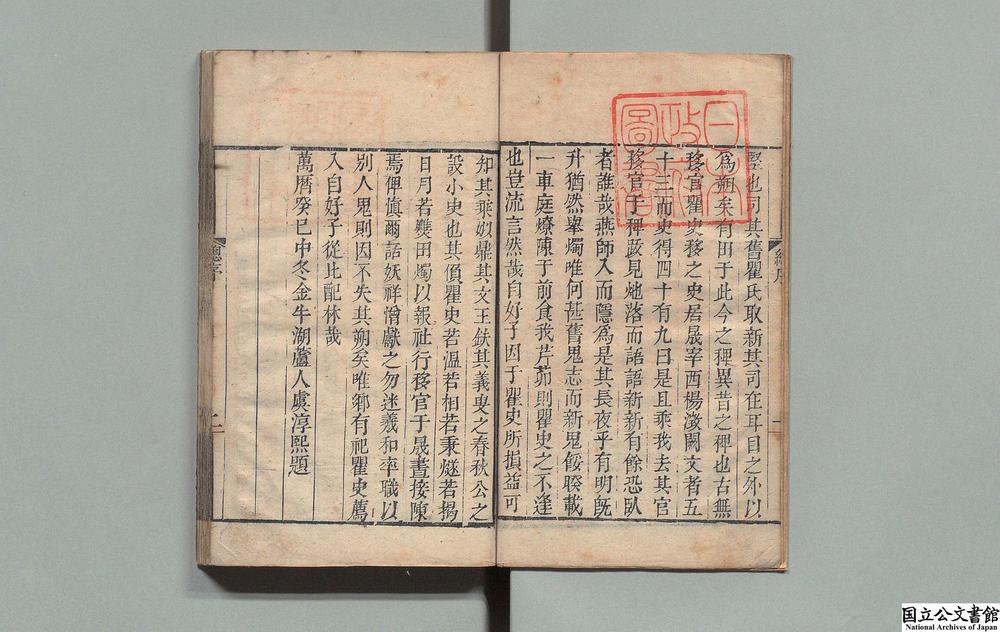 堅也司其舊瞿氏取新其司在耳目之外以
為朔矣有田于此今之稗異昔之稗也古無
稗官瞿史移之史居晟宰酉楊淩闕文者五
十三而史得四十有九曰是且乘我去其官
稗官于稗蔎見灺落而語語新新有餘恐臥
者誰哉燕師入而隱為是其長夜乎有明旣
升猶然舉燭唯何甚舊鬼志而新鬼餒睽載
一車庭燎陳于前食我芹茆則瞿史之不逢
也豈流言然哉自好子因于瞿史所損益可
知其乘如鼎其文王鈇其義叟之春秋公之
設小史也其偩瞿史若溫若相若秉燧若揭
日月若㸐田燭以報社行移官于晟晝接陳
焉俾愼爾話妖祥憎獻之勿迷羲和率職以
別人鬼則因不失其朔矣唯鄉有祀瞿史薦
入自好子從比配林哉
萬曆癸巳中冬金牛湖蘆人虞淳熙題
總序
一
總序
二
国立公文書館
National Archives of Japan